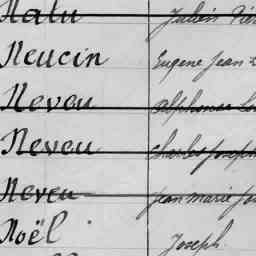 Natu Julien
Neucin Eugene Jean
Neveu Alphonse
Neveu Charles Joseph
Neveu Jean Marie
Noël Joseph.